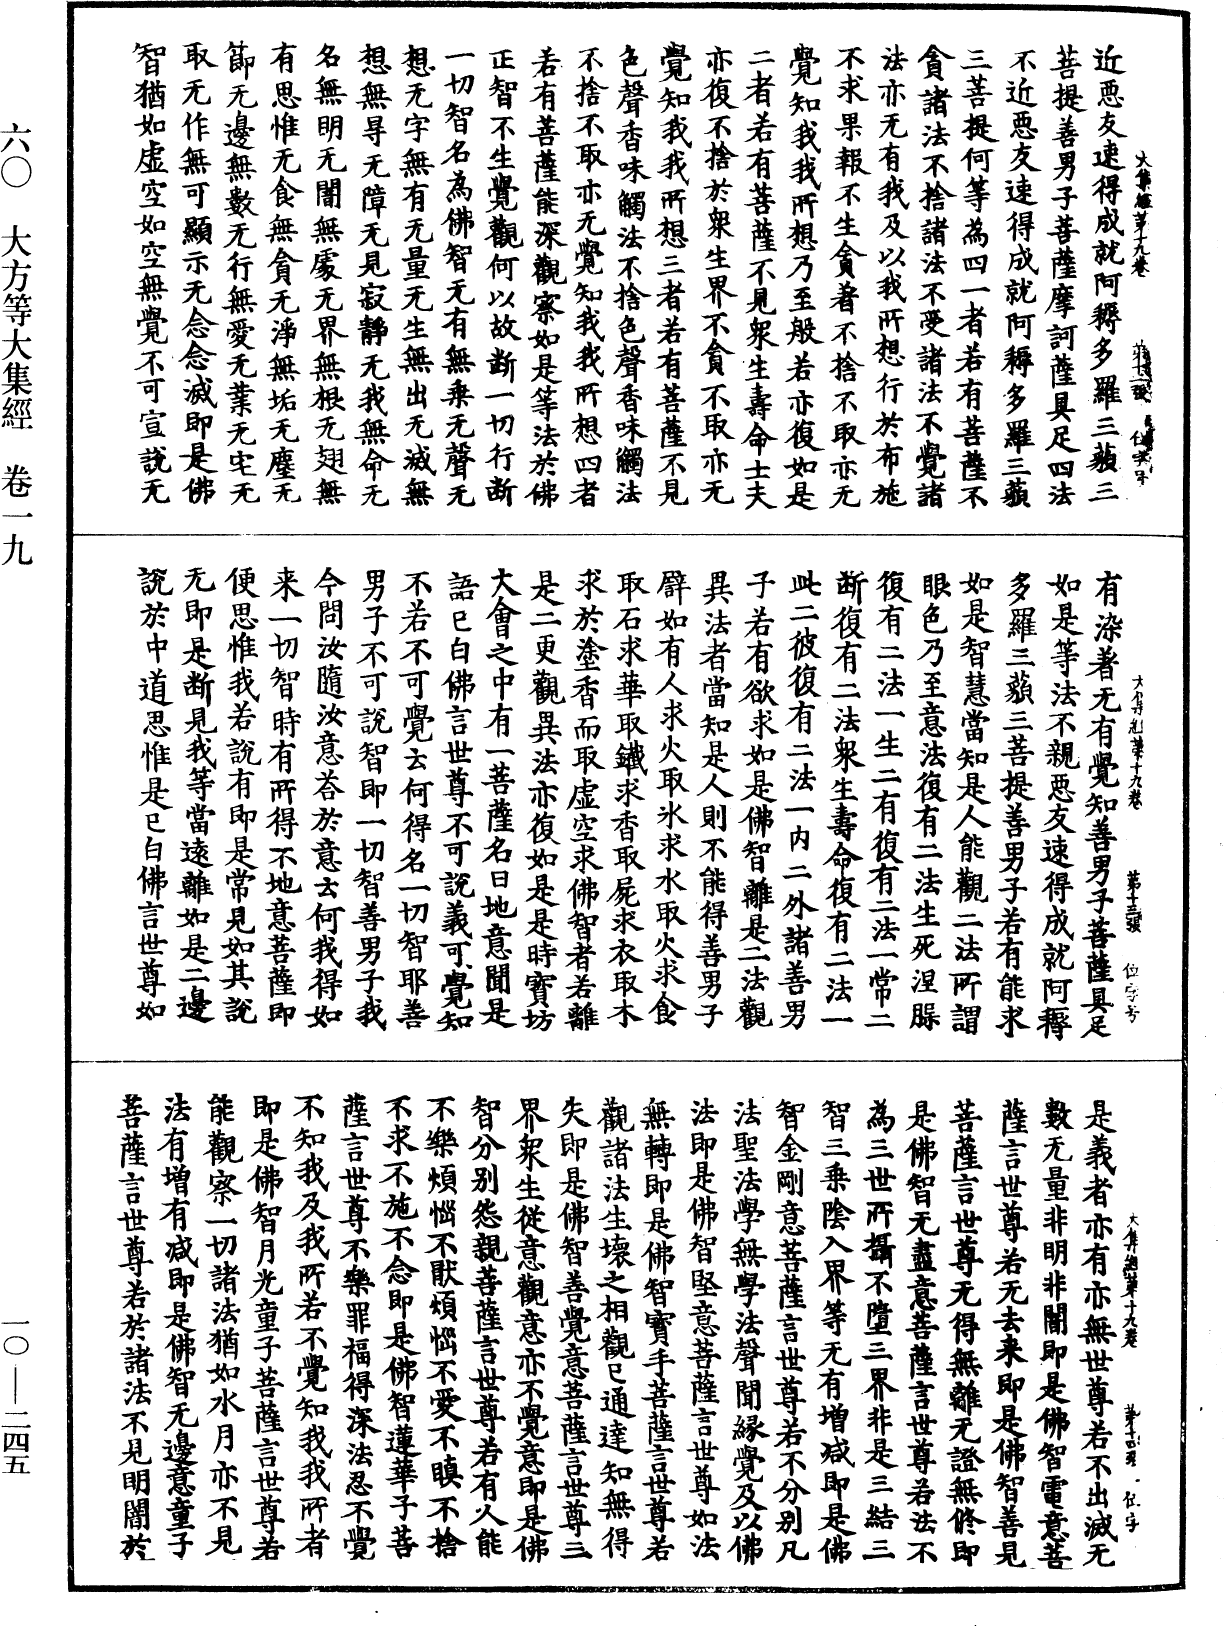 六〇　大方等大集經　卷一九
一〇——二四五
大集經第十九卷
近惡友速得成就阿耨多羅三藐三
菩提善男子菩薩摩訶薩具足四法
不近惡友速得成就阿耨多羅三藐
三菩提何等為四一者若有菩薩不
貪諸法不捨諸法不受諸法不覺諸
法亦无有我及以我所想行於布施
不求果報不生貪著不捨不取亦无
覺知我我所想乃至般若亦復如是
二者若有菩薩不見衆生壽命士夫
亦復不捨於衆生界不貪不取亦无
覺知我我所想三者若有菩薩不見
色聲香味觸法不捨色聲香味觸法
不捨不取亦无覺知我我所想四者
若有菩薩能深觀察如是等法於佛
正智不生覺觀何以故断一切行断
一切智名為佛智无有無乗无聲无
想无字無有无量无生無出无滅無
想無㝵无障无見寂静无我無命无
名無明无闇無處无界無根无翅無
有思惟无食無貪无淨無垢无塵无
節无邊無數无行無愛无業无宅无
取无作無可顯示无念念滅即是佛
智猶如虛空如空無覺不可宣說无
大集經第十九卷　第十三張　位字号
有染著无有覺知善男子菩薩具足
如是等法不親惡友速得成就阿耨
多羅三藐三菩提善男子若有能求
如是智慧當知是人能觀二法所謂
眼色乃至意法復有二法生死涅脲
復有二法一生二有復有二法一常二
断復有二法衆生壽命復有二法一
此二彼復有二法一内二外諸善男
子若有欲求如是佛智離是二法觀
異法者當知是人則不能得善男子
譬如有人求火取氷求水取火求食
取石求華取鐵求香取屍求衣取木
求於塗香而取虛空求佛智者若離
是二更觀異法亦復如是是時寶坊
大會之中有一菩薩名曰地意聞是
語已白佛言世尊不可說義可覺知
不若不可覺云何得名一切智耶善
男子不可說智即一切智善男子我
今問汝隨汝意荅於意云何我得如
来一切智時有所得不地意菩薩即
便思惟我若說有即是常見如其說
无即是断見我等當遠離如是二邊
說於中道思惟是已白佛言世尊如
大集經第十九卷　第十四張　位字
是義者亦有亦無世尊若不出滅无
數无量非明非闇即是佛智電意菩
薩言世尊若无去来即是佛智善見
菩薩言世尊无得無離无證無修即
是佛智无盡意菩薩言世尊若法不
為三世所攝不墮三界非是三結三
智三乗陰入界等无有增减即是佛
智金剛意菩薩言世尊若不分别凡
法聖法學無學法聲聞緣覺及以佛
法即是佛智堅意菩薩言世尊如法
無轉即是佛智寶手菩薩言世尊若
觀諸法生壞之相觀已通達知無得
失即是佛智善覺意菩薩言世尊三
界衆生從意觀意亦不覺意即是佛
智分别怨親菩薩言世尊若有人能
不樂煩惱不猒煩惱不愛不瞋不捨
不求不施不念即是佛智蓮華子菩
薩言世尊不樂罪福得深法忍不覺
不知我及我所若不覺知我我所者
即是佛智月光童子菩薩言世尊若
能觀察一切諸法猶如水月亦不見
法有增有減即是佛智无邊意童子
菩薩言世尊若於諸法不見明闇於